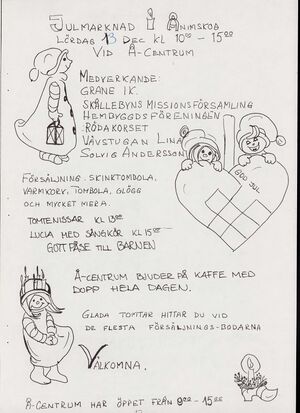 JULMARKNAD I ÄNIMSKOG
LÖRDAG 13 DEC KL 10⁰⁰ - 15⁰⁰
VID Å-CENTRUM
MEDVERKANDE:
GRANE IK.
SKÅLLEBYNS MISSIONSFÖRSAMLING
HEMBYGDSFÖRENINGEN
RÖDAKORSET
VÄVSTUGAN LINA
SOLVIG ANDERSSON
GOD JUL
FÖRSÄLJNING. SKINKTOMBOLA,
VARMKORV, TOMBOLA, GLÖGG
OCH MYCKET MERA.
TOMTENISSAR KL 13⁰⁰
LUCIA MED SÅNGKÖR KL 15⁰⁰
GOTTPÅSE TILL BARNEN
Å-CENTRUM BJUDER PÅ KAFFE MED
DOPP HELA DAGEN.
GLADA TOMTAR HITTAR DU VID
DE FLESTA FÖRSÄLJNINGS-BODARNA
VÄLKOMNA.
Å-CENTRUM HAR ÖPPET FRÅN 9⁰⁰ - 15⁰⁰